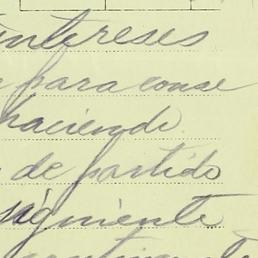 intereses
para conse
haciendo
de partido
siguiente